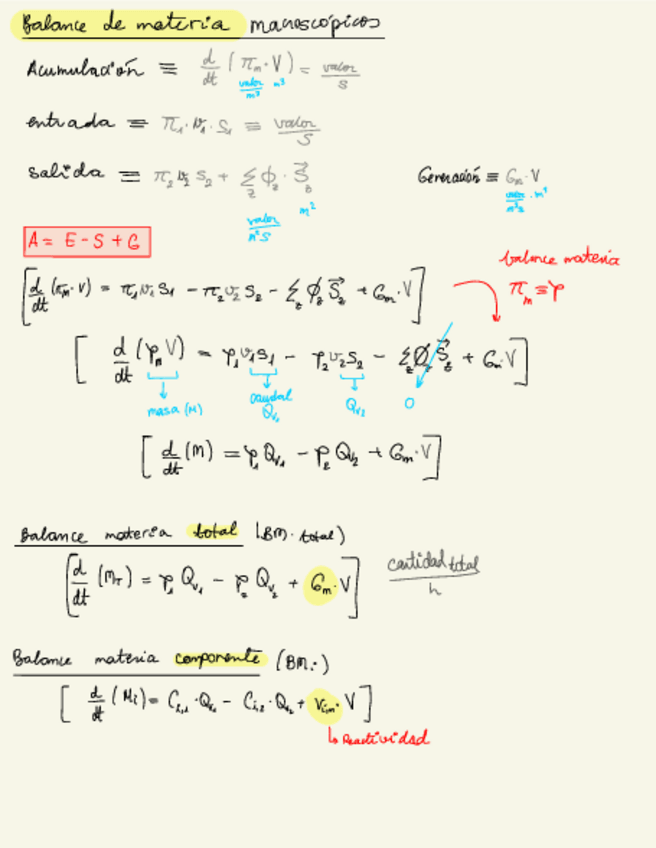 Balance de materia macroscópicos
Acumulación ≡ d/dt (π_m · V) = valor/s
valor/m³ m³
entrada ≡ π₁ · v₁ · S₁ ≡ valor/s
salida ≡ π₂ v₂ S₂ + Σ_z ϕ_z · S⃗_z
valor/m²s m²
Generación ≡ G_m · V
valor/m³s · m³
A = E - S + G
balance materia
π_m ≡ ρ
[d/dt (π_m · V) = π₁ v₁ S₁ - π₂ v₂ S₂ - Σ_z ϕ_z S⃗_z + G_m · V]
[d/dt (ρ_m V) = ρ₁ v₁ S₁ - ρ₂ v₂ S₂ - Σ_z ϕ_z S⃗_z + G_m · V]
masa (M) caudal Q_v₁ Q_v₂ 0
[d/dt (M) = ρ₁ Q_v₁ - ρ₂ Q_v₂ + G_m · V]
Balance materia total (BM. total)
[d/dt (M_T) = ρ₁ Q_v₁ - ρ₂ Q_v₂ + G_m · V] cantidad total/h
Balance materia componente (BM.)
[d/dt (M_i) = C_i,1 · Q_v₁ - C_i,2 · Q_v₂ + r_i,m · V]
↳ Reactividad